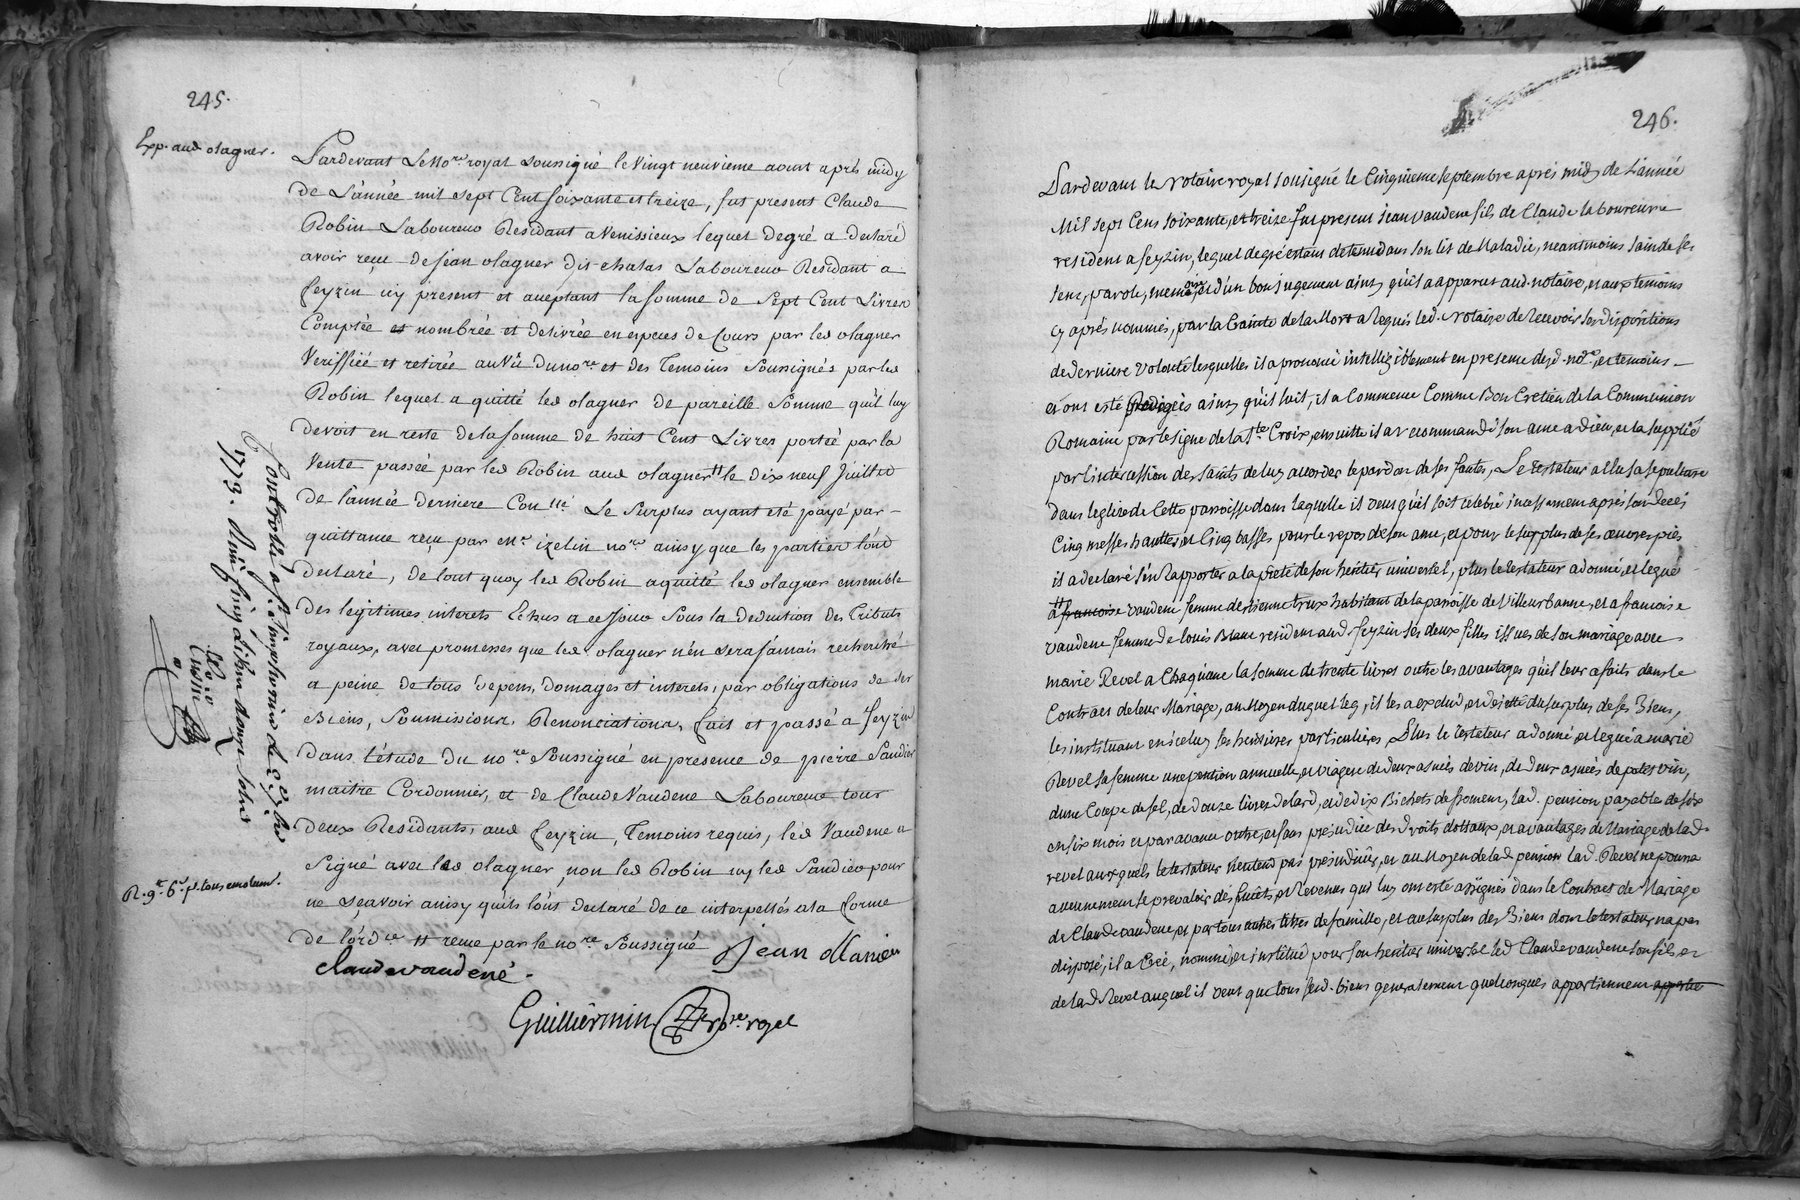 245.
Exp. aud olagner.
Pardevant Le No.re royal soussigné le vingt neuvieme aoust après midy
de L'année mil sept Cent soixante et treize, fut present Claude
Robin Laboureur Residant a Venissieux lequel de gré a declaré
avoir reçu de jean olagner dit chalas Laboureur Residant a
feyzin icy present et aceptant la somme de Sept Cent Livres
Comptée et nombrée et delivrée en especes de Cours par led olagner
Veriffiée et retirée au Vû du no.re et des Temoins Soussignés par led
Robin lequel a quitté led olagner de pareille Somme qu'il luy
devoit en reste de la somme de huit Cent Livres portée par la
Vente passée par led Robin aud olagner le dix neuf Juillet
de l'année derniere Con.llé Le Surplus ayant été payé par
quittance reçu par me. izelin no.re ainsy que les parties l'ont
declaré, de tout quoy led Robin a quitté led olagner ensemble
des legitimes interets Echus a ce jour sous la deduction des Tributs
royaux, avec promesses que led olagner n'en sera jamais recherché
a peine de tous depens, domages et interets, par obligations de ses
Biens, Soumissions, Renonciations, fait et passé à feyzin
dans l'étude du no.re Soussigné en presence de pierre Sandier
maitre Cordonnier, et de Claude Vaudene Laboureur tous
deux Residants, aud feyzin, Temoins requis, led Vaudene a
Signé avec led olagner, non led Robin ny led Sandier pour
ne sçavoir ainsy qu'ils l'ont declaré de ce interpellés a la forme
de l'ord.ce reçue par le no.re Soussigné jean ollanier
claude vaudené.
Guilliermin no.re royal
Controllé a st. simphorien le 2 7bre
1773. Reçu
R. 9.t 6.s p. tous emolum.
246.
Pardevant le Notaire royal soussigné le Cinquieme septembre après midy de L'année
Mil sept Cens soixante, et treize fut present jean vaudene fils de Claude laboureur
resident a feyzin, lequel de gré etant detenu dans son lit de Maladie, neantmoins sain de ses
sens, parole, memoire, et d'un bon jugement ainsy qu'il a apparu aud. notaire, et aux temoins
cy après nommés, par la Crainte de la Mort a Requis led. Notaire de Recevoir ses dispositions
de derniere volonté lesquelles il a prononcé intelligiblement en presence desd. no.re, et temoins
et ont esté Redigées ainsy qu'il suit, il a Commencé Comme Bon Cretien de la Communion
Romaine par le signe de la S.te Croix, ensuitte il a recommandé son ame a dieu, et la supplié
par l'intercession des saints de luy accorder le pardon de ses fautes, Le testateur a Elu sa sepulture
dans l'eglise de Cette paroisse dans laquelle il veut qu'il soit celebré incessamment après son decés
Cinq messes hauttes, et Cinq basses pour le repos de son ame, et pour le surplus de ses œuvres pies
il a declaré s'en Rapporter a la pieté de son heritier universel, plus le testateur a donné, et legué
a francoise vaudene femme d'etienne trux habitant de la paroisse de Villeurbanne, et a francoise
vaudene femme de louis Blanc resident aud. feyzin ses deux filles issues de son mariage avec
marie Revel a Chaqu'une la somme de trente livres outre les avantages qu'il leur a faits dans le
Contract de leur Mariage, au Moyen duquel leg, il les a exclud, et dejetté du surplus de ses Biens,
les instituant en icelui ses heritieres particulieres, Plus le testateur a donné, et legué a marie
Revel sa femme une pention annuelle, et viagere de deux asnées de vin, de deux asnées de petit vin,
d'une Coupe de sel, de douze livres de lard, et de dix Bichets de froment, lad. pension payable de six
en six mois et par avance outre, et sans prejudice des droits dotaux, et avantages de Mariage de lad.
revel auxquels le testateur n'entend pas prejudicier, et au Moyen de lad pension lad. Revel ne pourra
aucunement se prevaloir des fruits, et Revenus qui luy ont esté assignés dans le Contract de Mariage
de Claude vaudene, et par tous autres titres de famille, et au surplus des Biens dont le testateur n'a pas
disposé, il a Créé, nommé, et institué pour son heritier universel led Claude vaudene son fils et
de lad Revel auquel il veut que tous sesd. biens generalement quelconques appartiennent